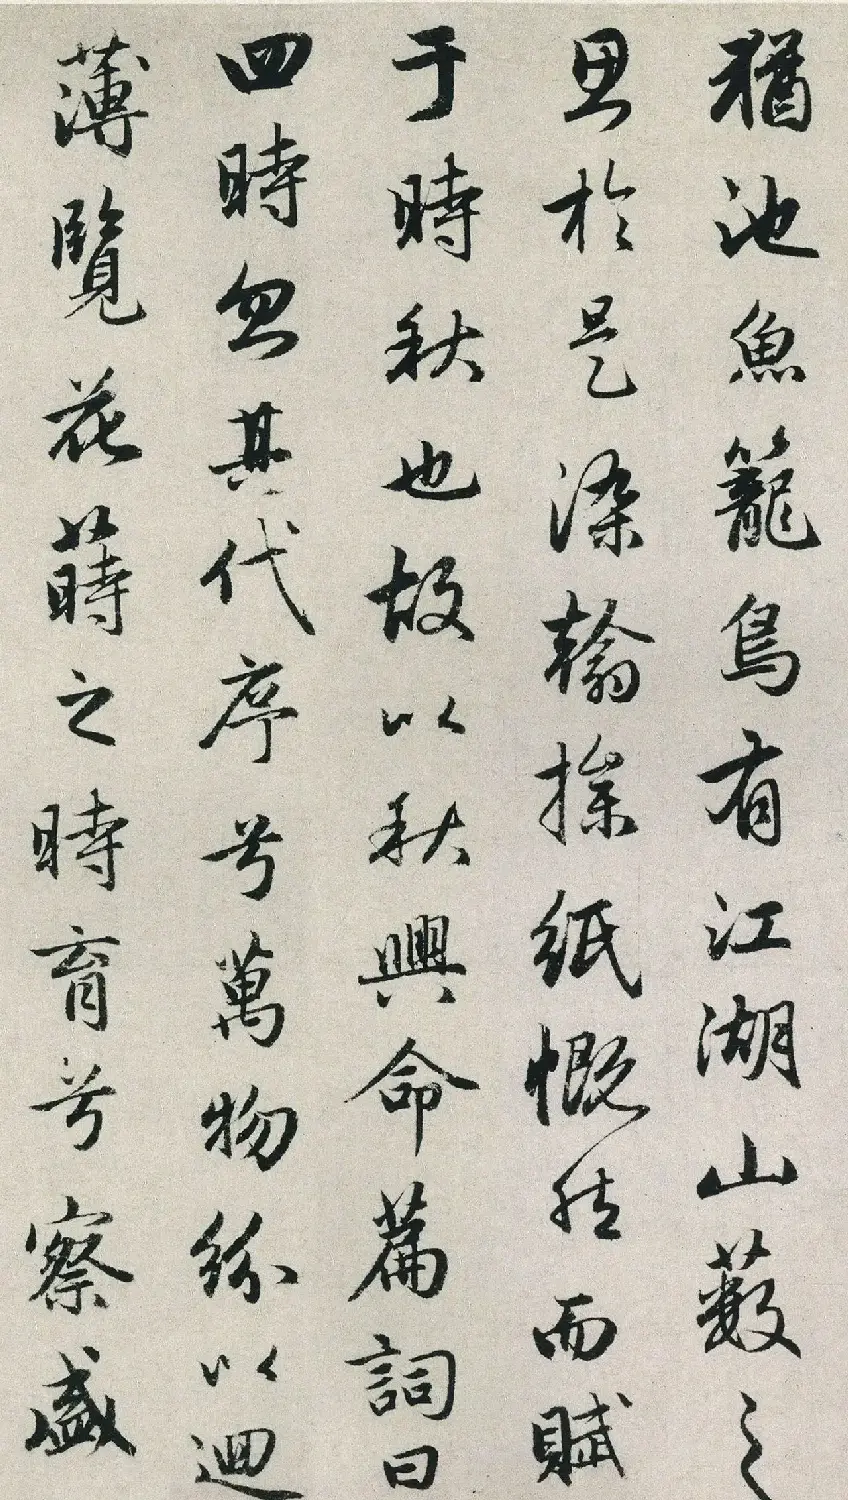 猶池魚籠鳥有江湖山藪之
思於是染翰操紙慨然而賦
于時秋也故以秋興命篇詞曰
四時忽其代序兮萬物紛以迴
薄覽花蒔之時育兮察盛